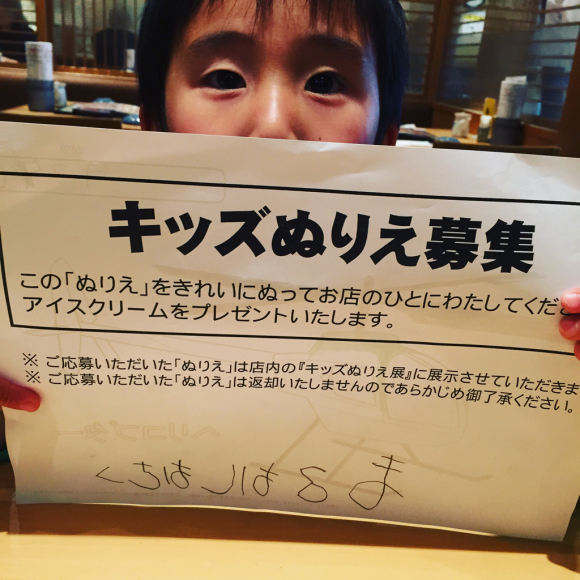 キッズぬりえ募集
この「ぬりえ」をきれいにぬってお店のひとにわたしてくだ
アイスクリームをプレゼントいたします。
※ ご応募いただいた「ぬりえ」は店内の『キッズぬりえ展』に展示させていただきま
※ ご応募いただいた「ぬりえ」は返却いたしませんのであらかじめ御了承ください。
ヘリコプター